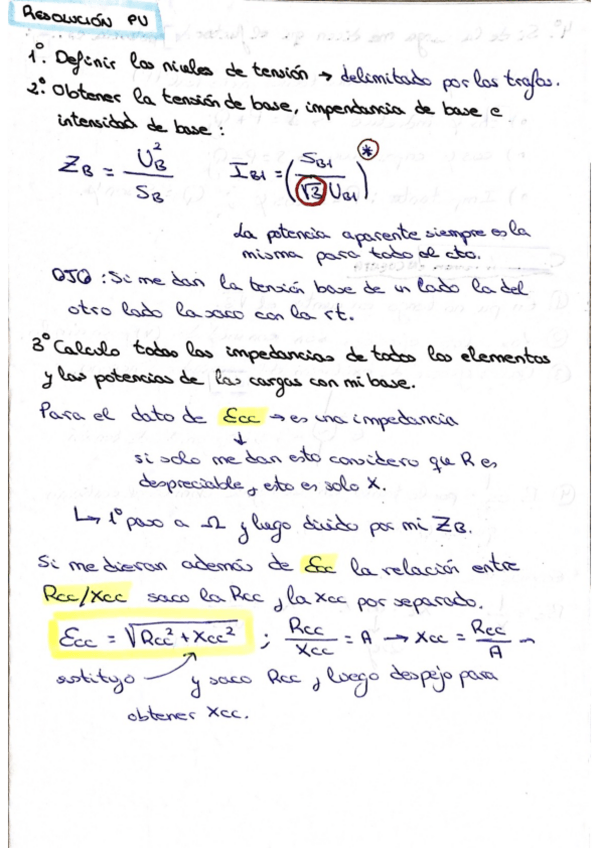 RESOLUCIÓN PU
1º. Definir los niveles de tensión → delimitado por los trafos.
2º. Obtener la tensión de base, impendancia de base e
intensidad de base:
Z_B = U_B² / S_B    I_B1 = (S_B1 / √3 U_B1)^*
La potencia aparente siempre es la
misma para todo el cto.
OJO: Si me dan la tensión base de un lado la del
otro lado la saco con la rt.
3º Calculo todas las impedancias de todos los elementos
y las potencias de las cargas con mi base.
Para el dato de Ecc → es una impedancia
↓
si solo me dan esto considero que R es
despreciable y esto es solo X.
↳ 1º paso a Ω y luego divido por mi Z_B.
Si me dieran además de Ecc la relación entre
Rcc/Xcc saco la Rcc y la Xcc por separado.
Ecc = √(Rcc² + Xcc²) ; Rcc / Xcc = A → Xcc = Rcc / A
sustituyo → y saco Rcc y luego despejo para
obtener Xcc.